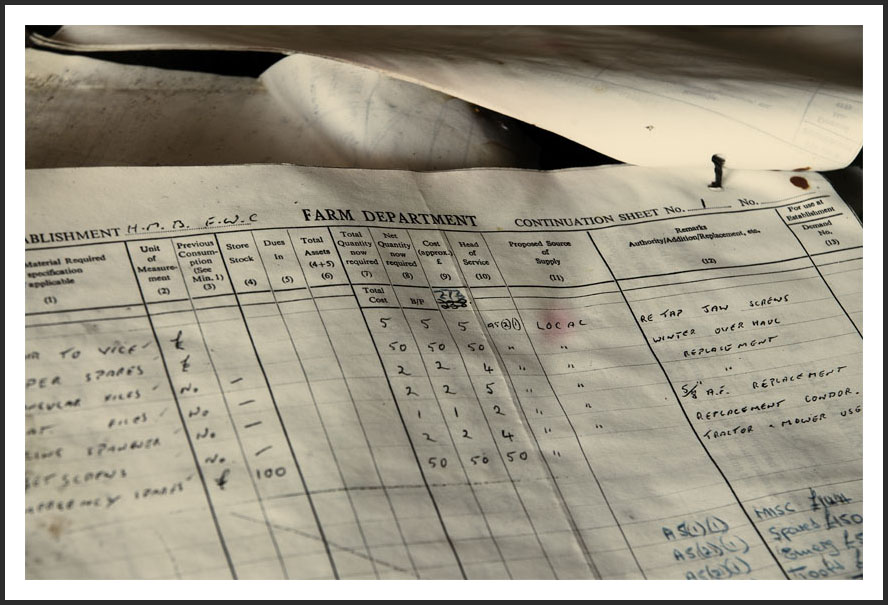 ABLISHMENT H.M.B. E.W.C FARM DEPARTMENT CONTINUATION SHEET No. 1 No.
Material Required
specification
applicable
(1)
Unit
of
Measure-
ment
(2)
Previous
Consum-
ption
(See
Min. 1)
(3)
Store
Stock
(4)
Dues
In
(5)
Total
Assets
(4+5)
(6)
Total
Quantity
now
required
(7)
Net
Quantity
now
required
(8)
Cost
(approx.)
£
(9)
Head
of
Service
(10)
Proposed Source
of
Supply
(11)
Remarks
Authority/Addition/Replacement, etc.
(12)
For use at
Establishment
Demand
No.
(13)
Total
Cost
B/F
272
5 5 5 AS(2)(1) LOCAL RE TAP JAW SCREWS
TO VICE £ 50 50 50 " " WINTER OVER HAUL
PER SPARES £ 2 2 4 " " REPLACEMENT
FILES No — 2 2 5 " " "
FILES No — 1 1 2 " " 5/8 A.F. REPLACEMENT
SPANNER No — 2 2 4 " REPLACEMENT CONDOR.
SET SCREWS No — 50 50 50 " TRACTOR - MOWER USE
SPARES £ 100
AS(1)(1) MISC
AS(2)(1) Spares £150
AS(2)(1) Tools £